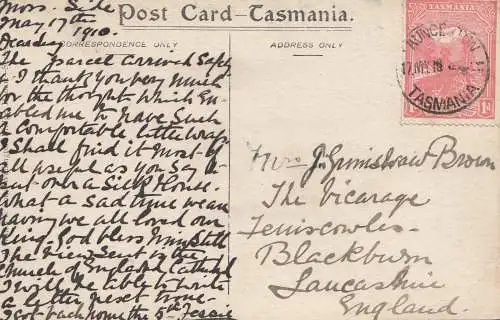 Moss. Side
May 17th 1910.
Post Card—Tasmania.
CORRESPONDENCE ONLY
ADDRESS ONLY
The parcel arrived Safely
& I thank you very much
for the thought which En-
abled me to have Such
a Comfortable little wrap
I Shall find it most
useful as you Say
put over a Silk
What a Sad time we are
having we all loved our
King. God bless him Still
The View Sent is the
Church of England Cathedral
I will be able to write
a letter next
got back home the 5th Jessie
TASMANIA
1d
LAUNCESTON
17 MY 10
TASMANIA
Mrs J. Grimshaw Brown
The Vicarage
Feniscowles-
Blackburn
Lancashire
England.